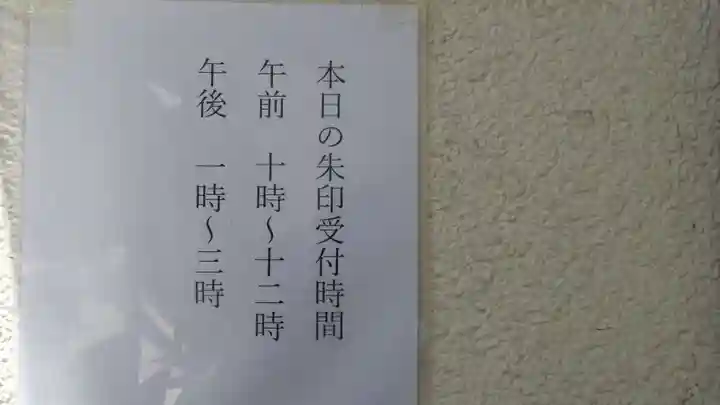 本日の朱印受付時間
午前　十時〜十二時
午後　一時〜三時